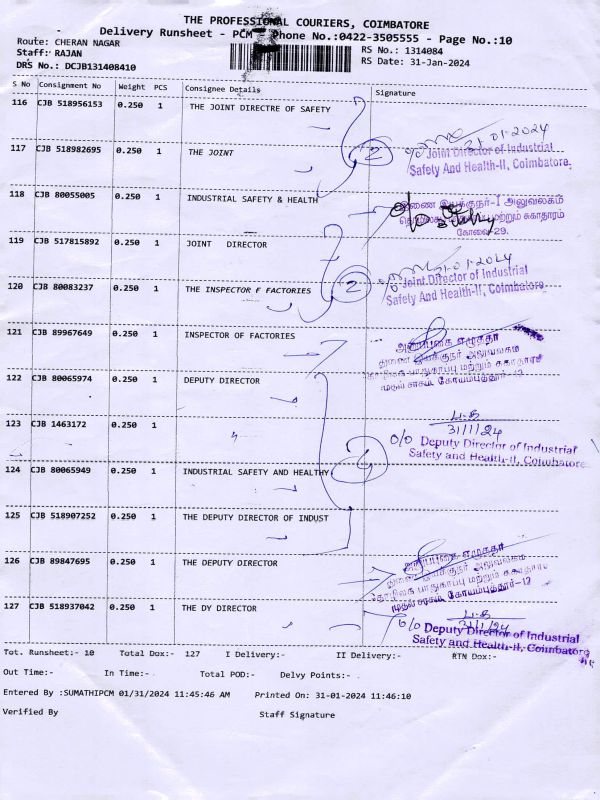 THE PROFESSIONAL COURIERS, COIMBATORE
Delivery Runsheet - PCM - Phone No.:0422-3505555 - Page No.:10
Route: CHERAN NAGAR
RS No.: 1314084
Staff: RAJAN
RS Date: 31-Jan-2024
DRS No.: DCJB131408410
S No Consignment No Weight PCS Consignee Details Signature
116 CJB 518956153 0.250 1 THE JOINT DIRECTRE OF SAFETY
31.01.2024
117 CJB 518982695 0.250 1 THE JOINT
2
Joint Director of Industrial
Safety And Health-II, Coimbatore.
118 CJB 80055005 0.250 1 INDUSTRIAL SAFETY & HEALTH
இணை இயக்குநர்-I அலுவலகம்
மற்றும் சுகாதாரம்
கோவை-29.
119 CJB 517815892 0.250 1 JOINT DIRECTOR
31.01.2024
120 CJB 80083237 0.250 1 THE INSPECTOR F FACTORIES
2
Joint Director of Industrial
Safety And Health-II, Coimbatore.
121 CJB 89967649 0.250 1 INSPECTOR OF FACTORIES
துணை இயக்குநர் அலுவலகம்
122 CJB 80065974 0.250 1 DEPUTY DIRECTOR
123 CJB 1463172 0.250 1
31/1/24
O/O Deputy Director of Industrial
Safety and Health-II, Coimbatore
124 CJB 80065949 0.250 1 INDUSTRIAL SAFETY AND HEALTHY
4
125 CJB 518907252 0.250 1 THE DEPUTY DIRECTOR OF INDUST
126 CJB 89847695 0.250 1 THE DEPUTY DIRECTOR
துணை இயக்குநர் அலுவலகம்
127 CJB 518937042 0.250 1 THE DY DIRECTOR
31/1/24
O/O Deputy Director of Industrial
Safety and Health-II, Coimbatore
Tot. Runsheet:- 10 Total Dox:- 127 I Delivery:- II Delivery:- RTN Dox:-
Out Time:- In Time:- Total POD:- Delvy Points:-
Entered By :SUMATHIPCM 01/31/2024 11:45:46 AM Printed On: 31-01-2024 11:46:10
Verified By Staff Signature